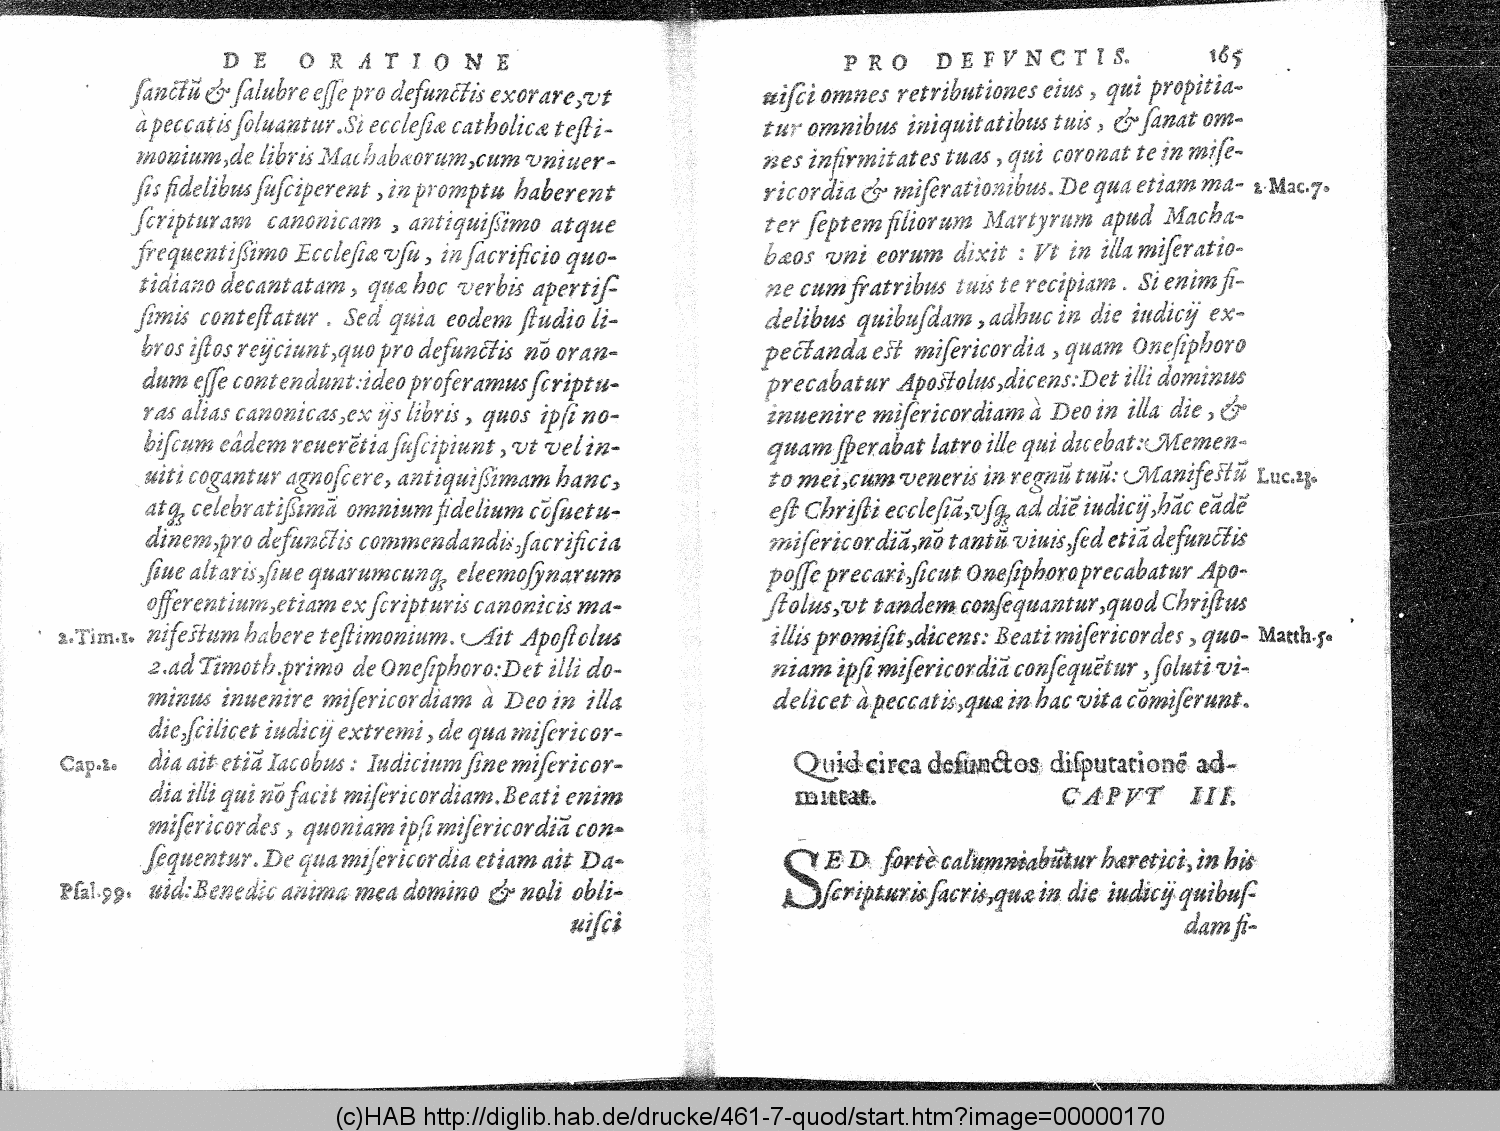 DE ORATIONE
ſanctũ & ſalubre eſſe pro defunctis exorare, vt
à peccatis ſoluantur. Si eccleſiæ catholicæ teſti-
monium, de libris Machabæorum, cum vniuer-
ſis fidelibus ſuſciperent, in promptu haberent
ſcripturam canonicam, antiquißimo atque
frequentißimo Eccleſiæ vſu, in ſacrificio quo-
tidiano decantatam, quæ hoc verbis apertiſ-
ſimis conteſtatur. Sed quia eodem ſtudio li-
bros iſtos reijciunt, quo pro defunctis nõ oran-
dum eſſe contendunt: ideo proferamus ſcriptu-
ras alias canonicas, ex ijs libris, quos ipſi no-
biſcum eâdem reuerẽtia ſuſcipiunt, vt vel in-
uiti cogantur agnoſcere, antiquißimam hanc,
atq; celebratißimã omnium fidelium cõſuetu-
dinem, pro defunctis commendandis, ſacrificia
ſiue altaris, ſiue quarumcunq; eleemoſynarum
offerentium, etiam ex ſcripturis canonicis ma-
2.Tim.1. nifeſtum habere teſtimonium. Ait Apoſtolus
2. ad Timoth. primo de Oneſiphoro: Det illi do-
minus inuenire miſericordiam à Deo in illa
die, ſcilicet iudicij extremi, de qua miſericor-
Cap.2. dia ait etiã Iacobus: Iudicium ſine miſericor-
dia illi qui nõ facit miſericordiam. Beati enim
miſericordes, quoniam ipſi miſericordiã con-
ſequentur. De qua miſericordia etiam ait Da-
Pſal.99. uid: Benedic anima mea domino & noli obli-
uiſci
PRO DEFVNCTIS. 165
uiſci omnes retributiones eius, qui propitia-
tur omnibus iniquitatibus tuis, & ſanat om-
nes infirmitates tuas, qui coronat te in miſe-
ricordia & miſerationibus. De qua etiam ma- 2.Mac.7.
ter ſeptem filiorum Martyrum apud Macha-
bæos vni eorum dixit: Vt in illa miſeratio-
ne cum fratribus tuis te recipiam. Si enim fi-
delibus quibuſdam, adhuc in die iudicij ex-
pectanda eſt miſericordia, quam Oneſiphoro
precabatur Apoſtolus, dicens: Det illi dominus
inuenire miſericordiam à Deo in illa die, &
quam ſperabat latro ille qui dicebat: Memen-
to mei, cum veneris in regnũ tuũ: Manifeſtũ Luc.23.
eſt Chriſti eccleſiã, vſq; ad diẽ iudicij, hãc eãdẽ
miſericordiã, nõ tantũ viuis, ſed etiã defunctis
poſſe precari, ſicut Oneſiphoro precabatur Apo-
ſtolus, vt tandem conſequantur, quod Chriſtus
illis promiſit, dicens: Beati miſericordes, quo- Matth.5.
niam ipſi miſericordiã conſequẽtur, ſoluti vi-
delicet à peccatis, quæ in hac vita cõmiſerunt.
Quid circa defunctos diſputationẽ ad-
mittat. CAPVT III.
SED fortè calumniabũtur hæretici, in his
ſcripturis ſacris, quæ in die iudicij quibuſ-
dam fi-
(c)HAB http://diglib.hab.de/drucke/461-7-quod/start.htm?image=00000170